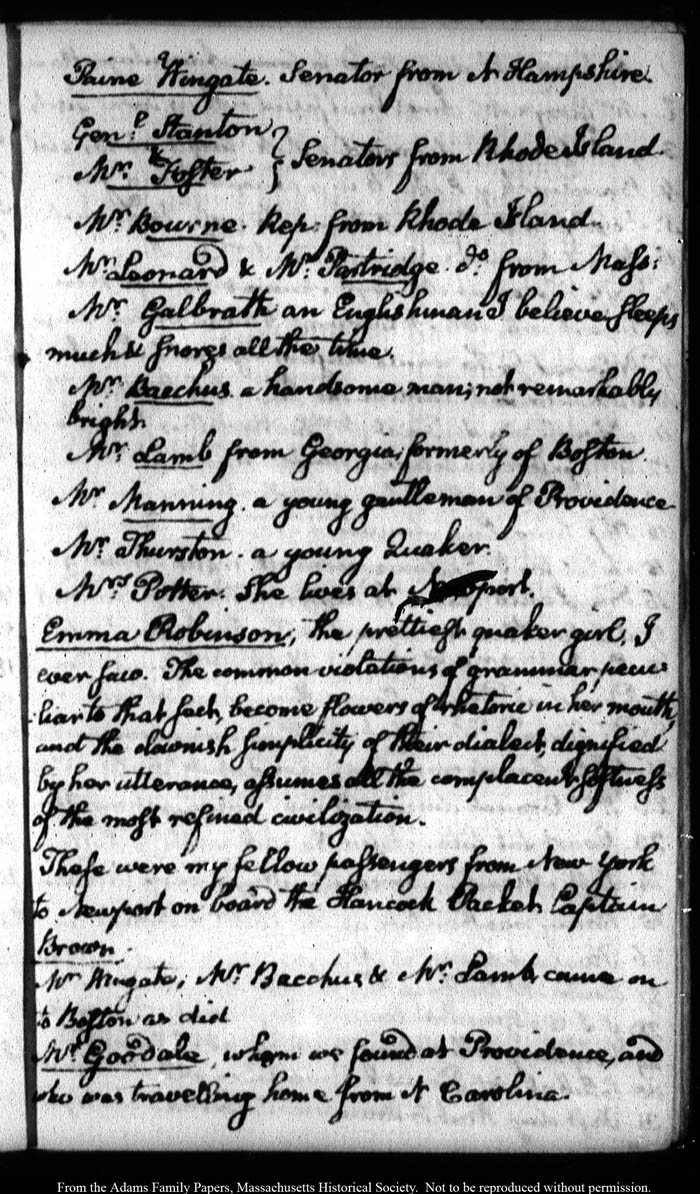 Paine Wingate. Senator from N Hampshire.
Genl. Stanton
& } Senators from Rhode Island.
Mr. Foster
Mr. Bourne. Rep: from Rhode Island.
Mr. Leonard & Mr. Partridge. do. from Mass:
Mr. Galbrath an Englishman I believe sleeps
much & snores all the time.
Mr. Bacchus. a handsome man; not remarkably
bright.
Mr. Lamb from Georgia, formerly of Boston.
Mr. Manning. a young gentleman of Providence
Mr. Thurston. a young Quaker.
Mrs. Potter. She lives at Newport.
Emma Robinson, the prettiest quaker girl, I
ever saw. The common violations of grammar, pecu-
liar to that sect, become flowers of rhetoric in her mouth,
and the clownish simplicity of their dialect, dignified
by her utterance, assumes all the complacent softness
of the most refined civilization.
These were my fellow passengers from New York
to Newport on board the Hancock Packet Captain
Brown.
Mr. Wingate, Mr. Bacchus & Mr. Lamb came on
to Boston as did
Mr. Goodale, whom we found at Providence, and
who was travelling home from N Carolina.
From the Adams Family Papers, Massachusetts Historical Society. Not to be reproduced without permission.